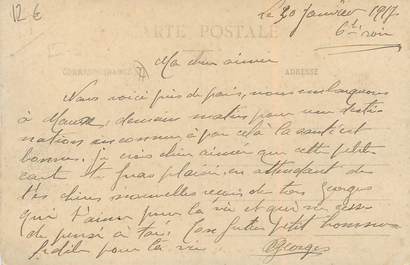 12 €
Le 20 Janvier 1917
CARTE POSTALE
6h soir
Ma chère aimée
CORRESPONDANCE
ADRESSE
Nous voici près de paris, nous embarquons
à demain matin pour une desti
nations inconnue à par cela la santé est
bonne. je crois chère aimée que cette petite
carte te feras plaisir, en attendant de
tes chères nouvelles reçois de ton Georges
qui t'aime pour la vie et qui ne cesse
de pensé à toi. Ton petit homme
fidèle pour la vie.
Georges